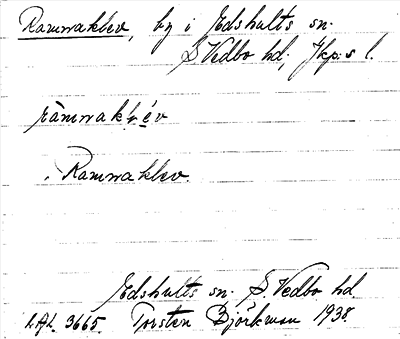 Ramnaklev, by i Edshults sn.
S Vedbo hd; Jkp:s l.
Ramnaklev.
Edshults sn. S. Vedbo hd.
L.A.L. 3665. Torsten Björkman 1938.